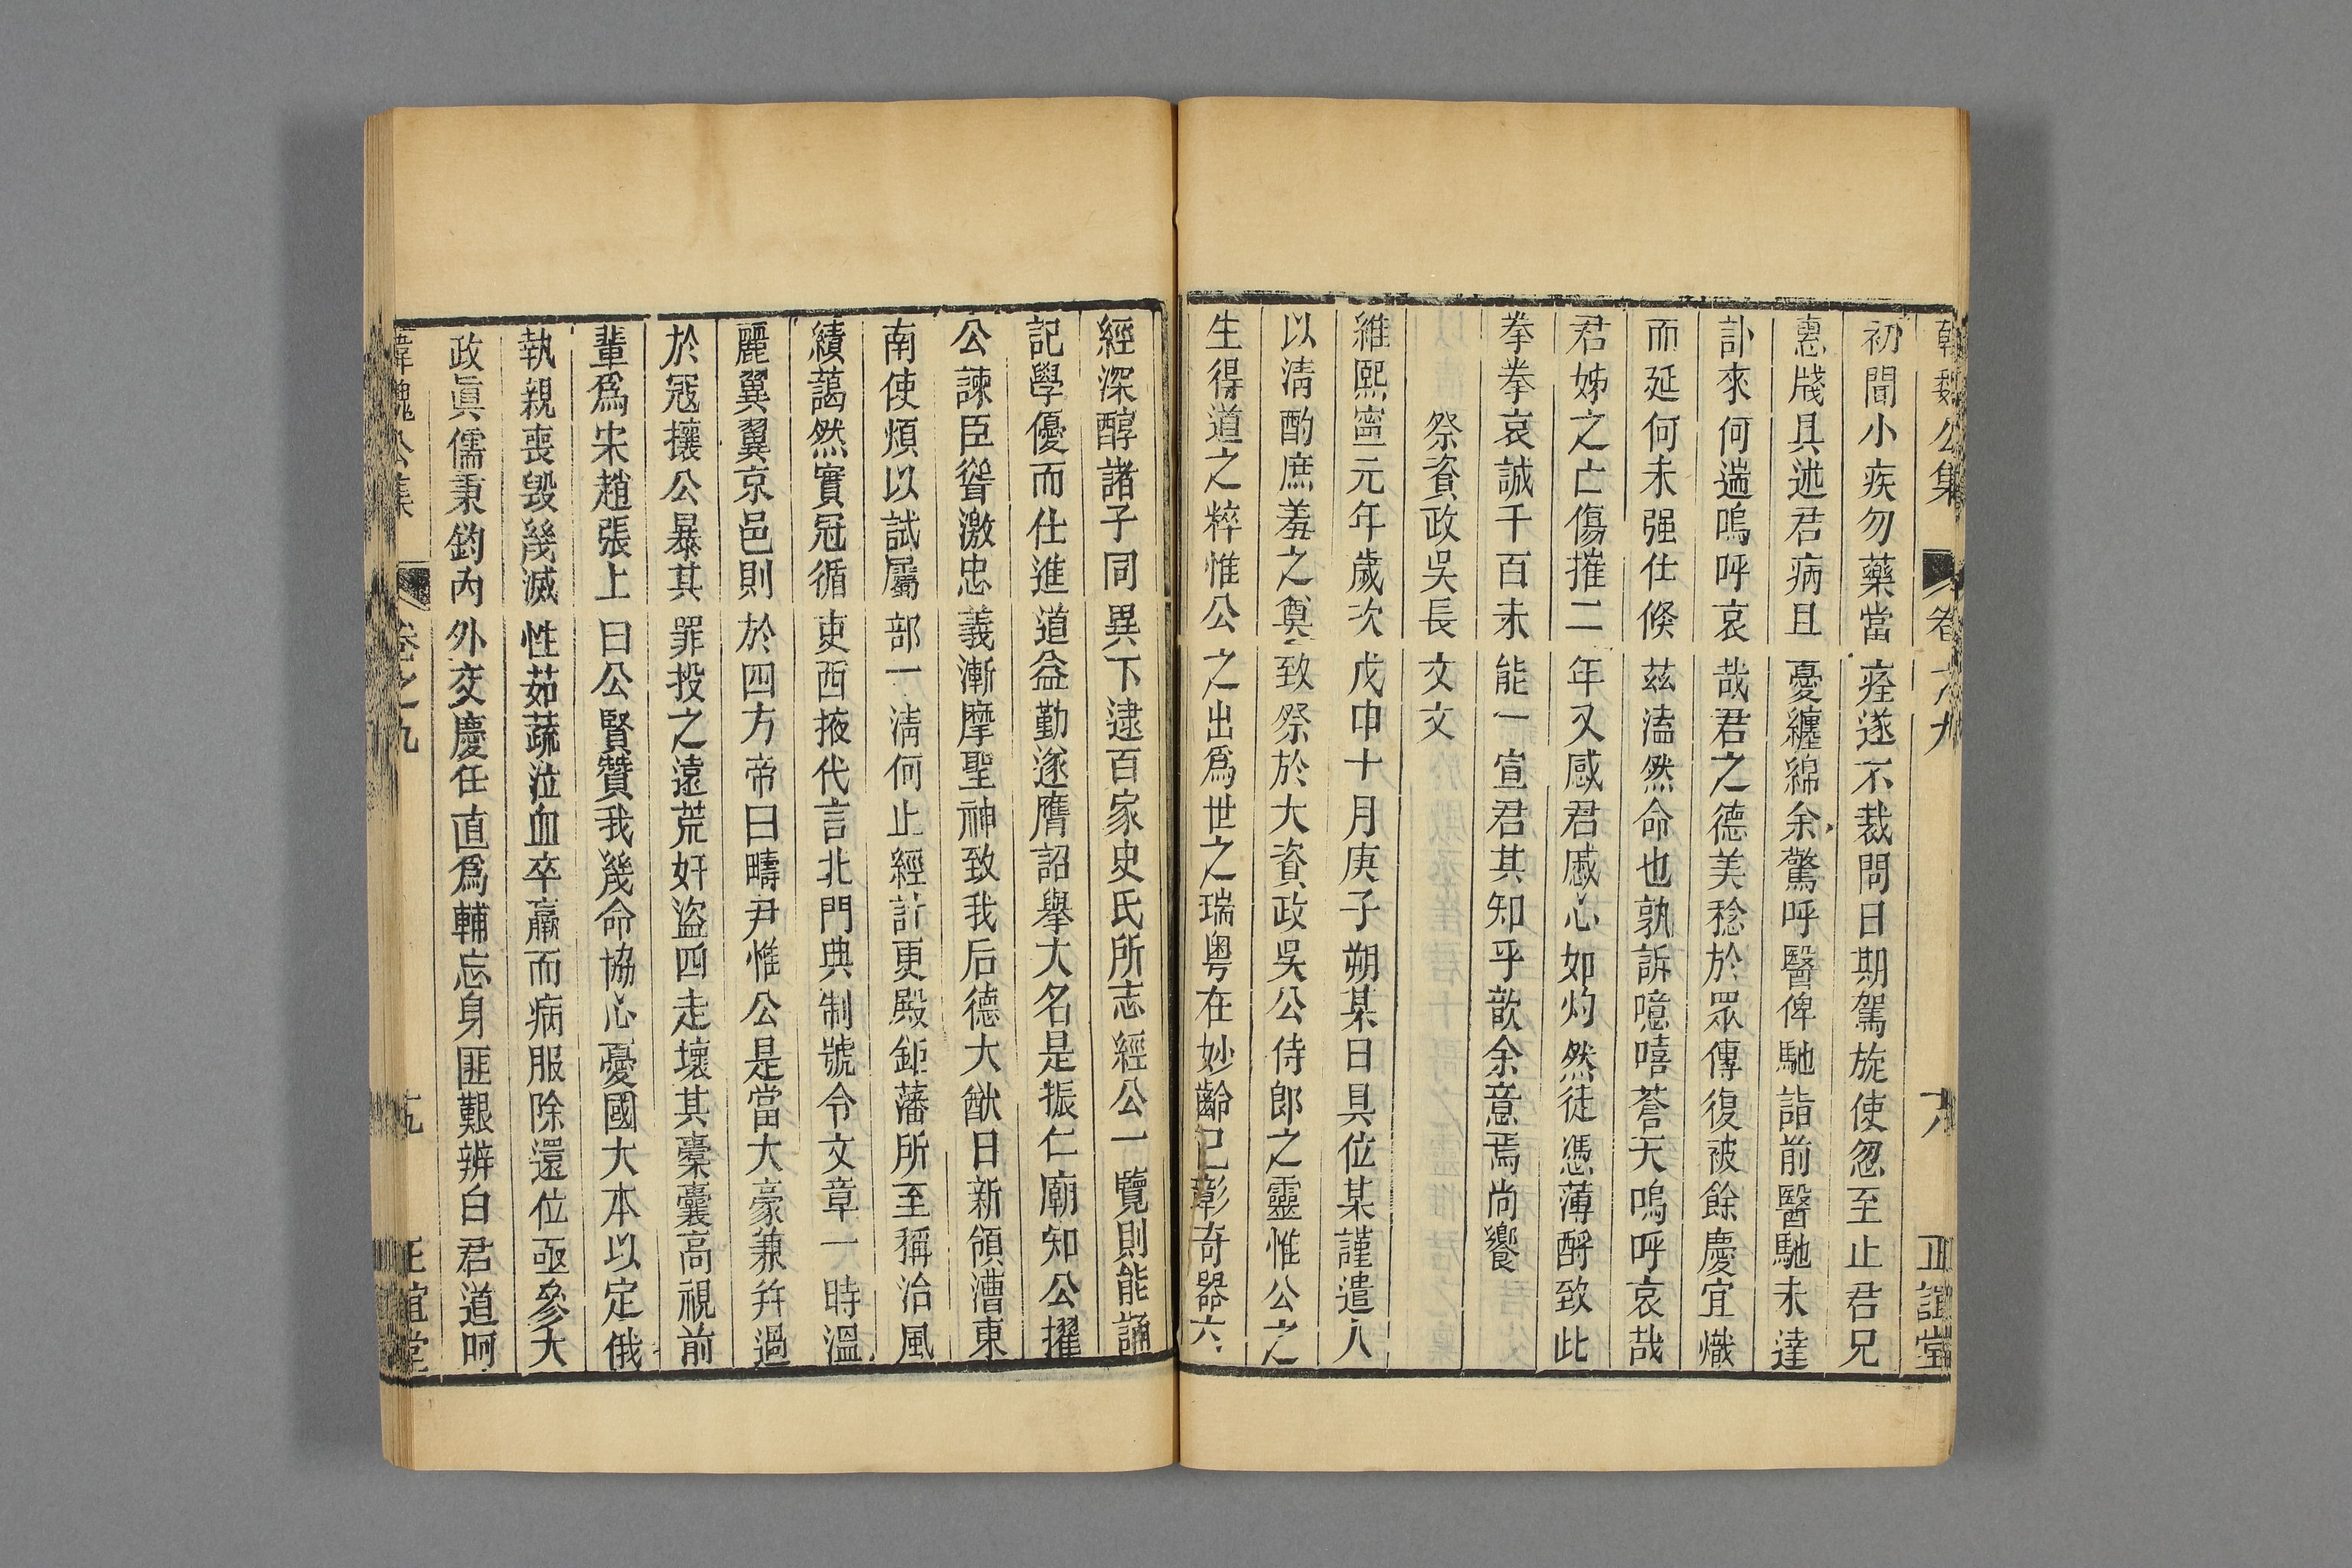 韓魏公集 卷之九 六 正誼堂
初聞小疾勿藥當痊遂不裁問日期駕旋使忽至止君兄
惠牋具述君病且憂纏綿余驚呼醫俾馳詣前醫馳未達
訃來何遄嗚呼哀哉君之德美稔於眾傳復被餘慶宜熾
而延何未强仕倐茲溘然命也孰訴噫嘻蒼天嗚呼哀哉
君姊之亡傷摧二年又感君戚心如灼然徒憑薄酹致此
拳拳哀誠千百未能一宣君其知乎歆余意焉尚饗
祭資政吳長文文
維熙寧元年歲次戊申十月庚子朔某日具位某謹遣人
以清酌庶羞之奠致祭於大資政吳公侍郎之靈惟公之
生得道之粹惟公之出爲世之瑞粤在妙齡已彰奇器六
經深醇諸子同異下逮百家史氏所志經公一覽則能誦
記學優而仕進道益勤遂膺詔舉大名是振仁廟知公擢
公諫臣甞激忠義漸摩聖神致我后德大猷日新領漕東
南使煩以試屬部一清何止經計更殿鉅藩所至稱治風
績藹然實冠循吏西掖代言北門典制號令文章一時溫
麗翼翼京邑則於四方帝曰疇尹惟公是當大豪兼并過
於冦攘公暴其罪投之遠荒奸盜四走壞其橐囊高視前
輩爲宋趙張上曰公賢贊我幾命協心憂國大本以定俄
執親喪毀幾滅性茹蔬泣血卒羸而病服除還位亟參大
政眞儒秉鈞内外交慶任直爲輔忘身匪艱辨白君道呵
韓魏公集 卷之九 正誼堂